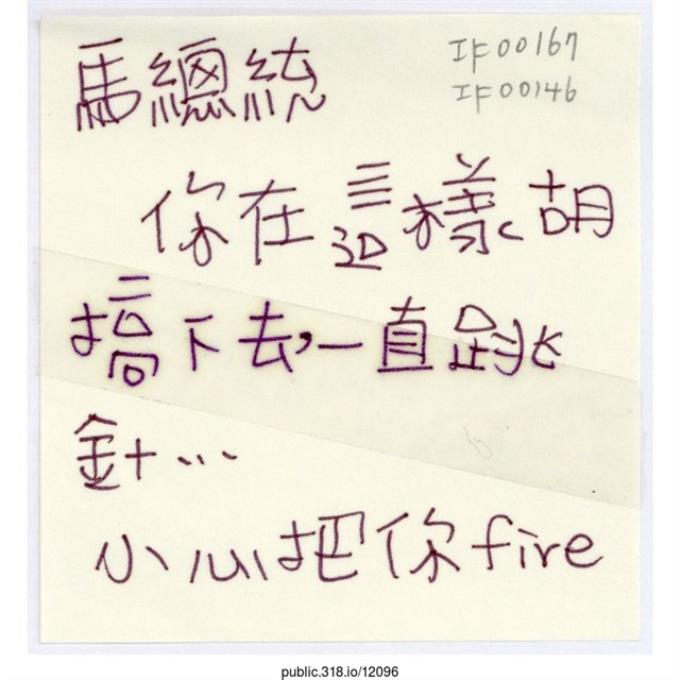 馬總統
IF00167
IF00146
你在這樣胡
搞下去,一直跳
針…
小心把你fire
public.318.io/12096